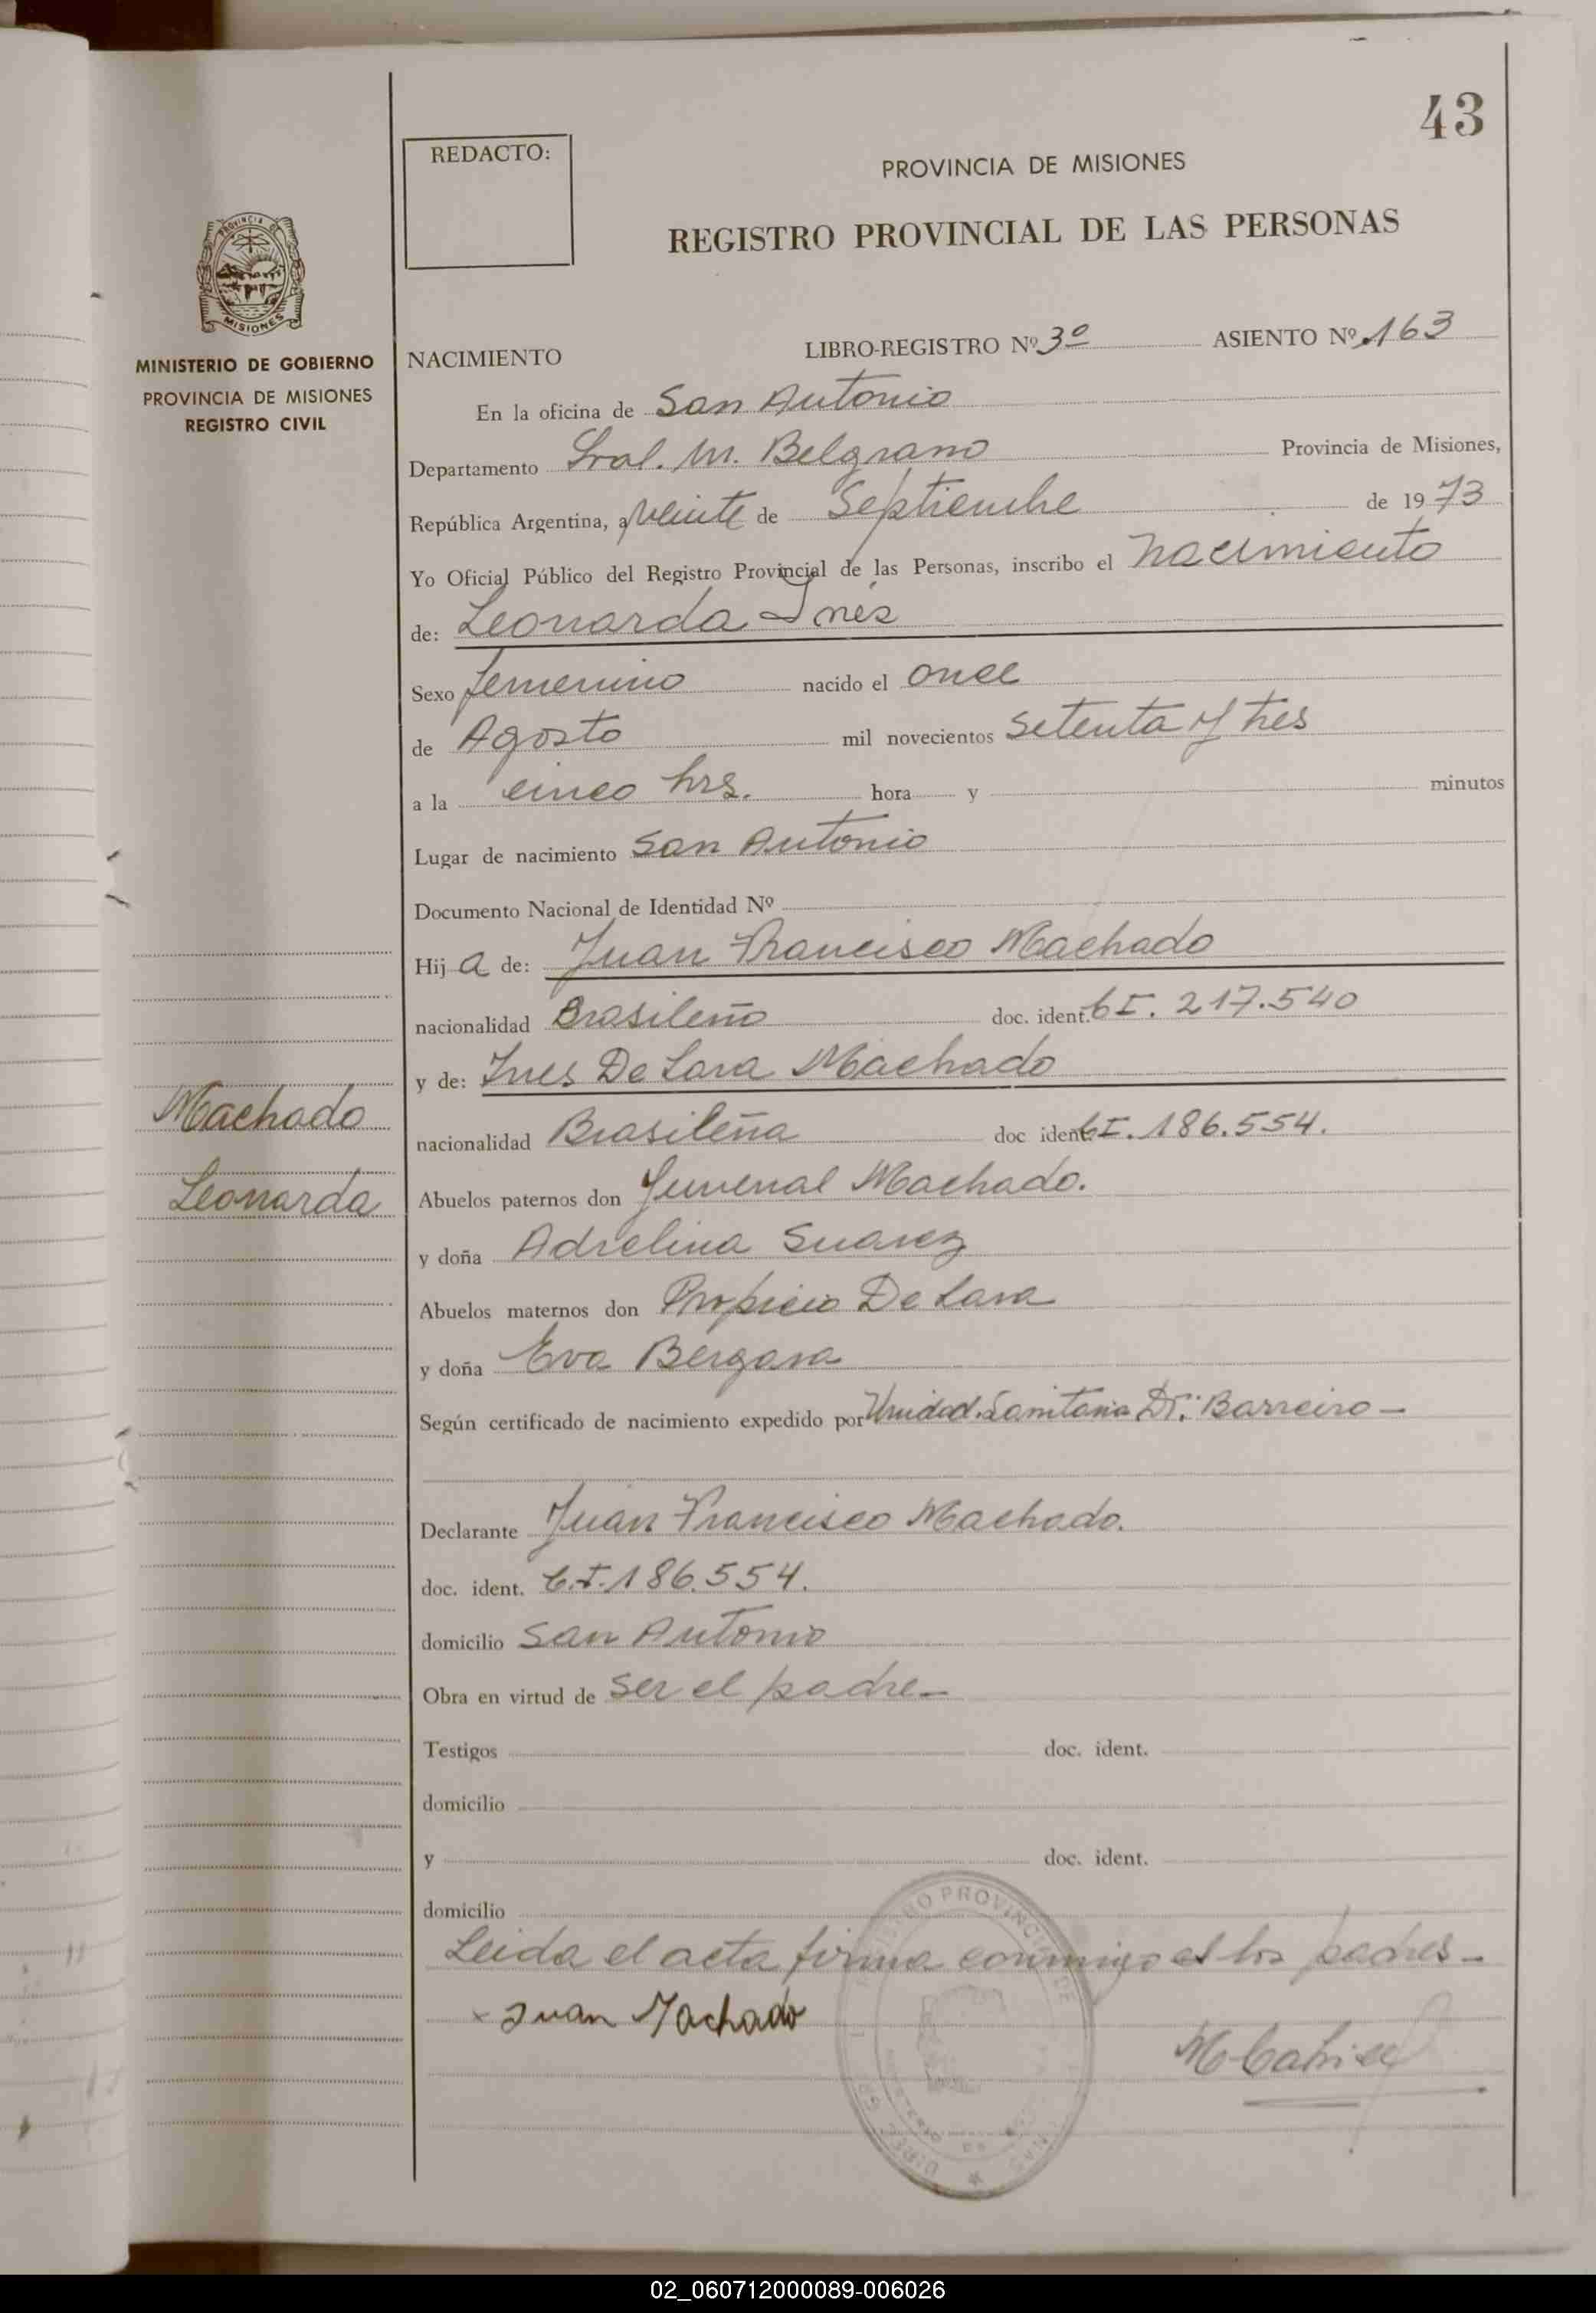 43
REDACTO:
PROVINCIA DE MISIONES
REGISTRO PROVINCIAL DE LAS PERSONAS
PROVINCIA
MISIONES
MINISTERIO DE GOBIERNO
PROVINCIA DE MISIONES
REGISTRO CIVIL
NACIMIENTO LIBRO-REGISTRO Nº 3º ASIENTO Nº 163
En la oficina de San Antonio
Departamento Gral. M. Belgrano Provincia de Misiones,
República Argentina, a veinte de Septiembre de 1973
Yo Oficial Público del Registro Provincial de las Personas, inscribo el nacimiento
de: Leonarda Inés
Sexo femenino nacido el once
de Agosto mil novecientos setenta y tres
a la cinco hrs. hora y minutos
Lugar de nacimiento San Antonio
Documento Nacional de Identidad Nº
Hij a de: Juan Francisco Machado
nacionalidad Brasileño doc. ident. C I. 217.540
y de: Ines De Lara Machado
Machado
nacionalidad Brasileña doc ident. C I. 186.554.
Leonarda
Abuelos paternos don Juvenal Machado.
y doña Adrelina Suarez
Abuelos maternos don Propicio De Lara
y doña Eva Bergara
Según certificado de nacimiento expedido por Unidad Sanitaria Dr. Barreiro -
Declarante Juan Francisco Machado.
doc. ident. C.I. 186.554.
domicilio San Antonio
Obra en virtud de ser el padre -
Testigos doc. ident.
domicilio
y doc. ident.
domicilio
Leida el acta firma conmigo los padres -
x Juan Machado
02_060712000089-006026